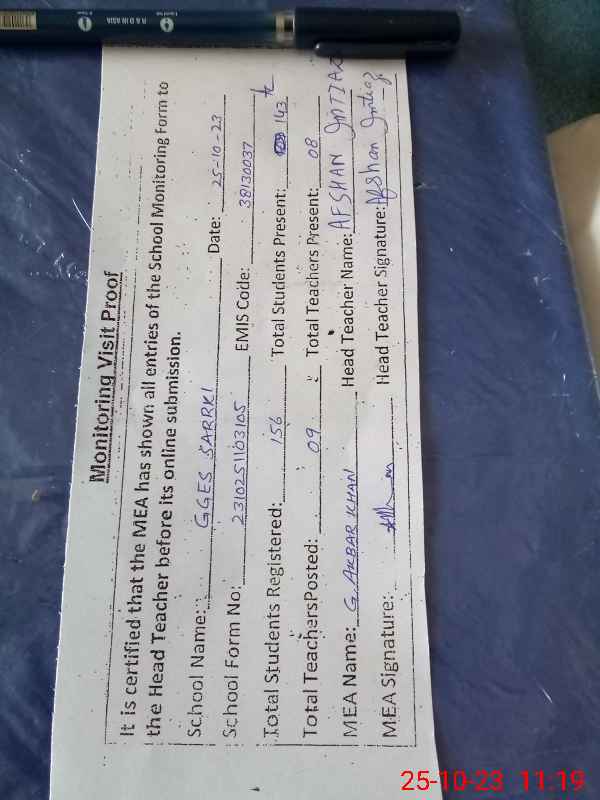 Monitoring Visit Proof
It is certified that the MEA has shown all entries of the School Monitoring Form to
the Head Teacher before its online submission.
School Name: GGES SARRKI Date: 25-10-23
School Form No: 2310251103105 EMIS Code: 38130037
Total Students Registered: 156 Total Students Present: 143
Total TeachersPosted: 09 Total Teachers Present: 08
MEA Name: G. AKBAR KHAN Head Teacher Name: AFSHAN IMTIAZ
MEA Signature: Head Teacher Signature: Afshan Imtiaz
R & D IN ASIA
25-10-23 11:19